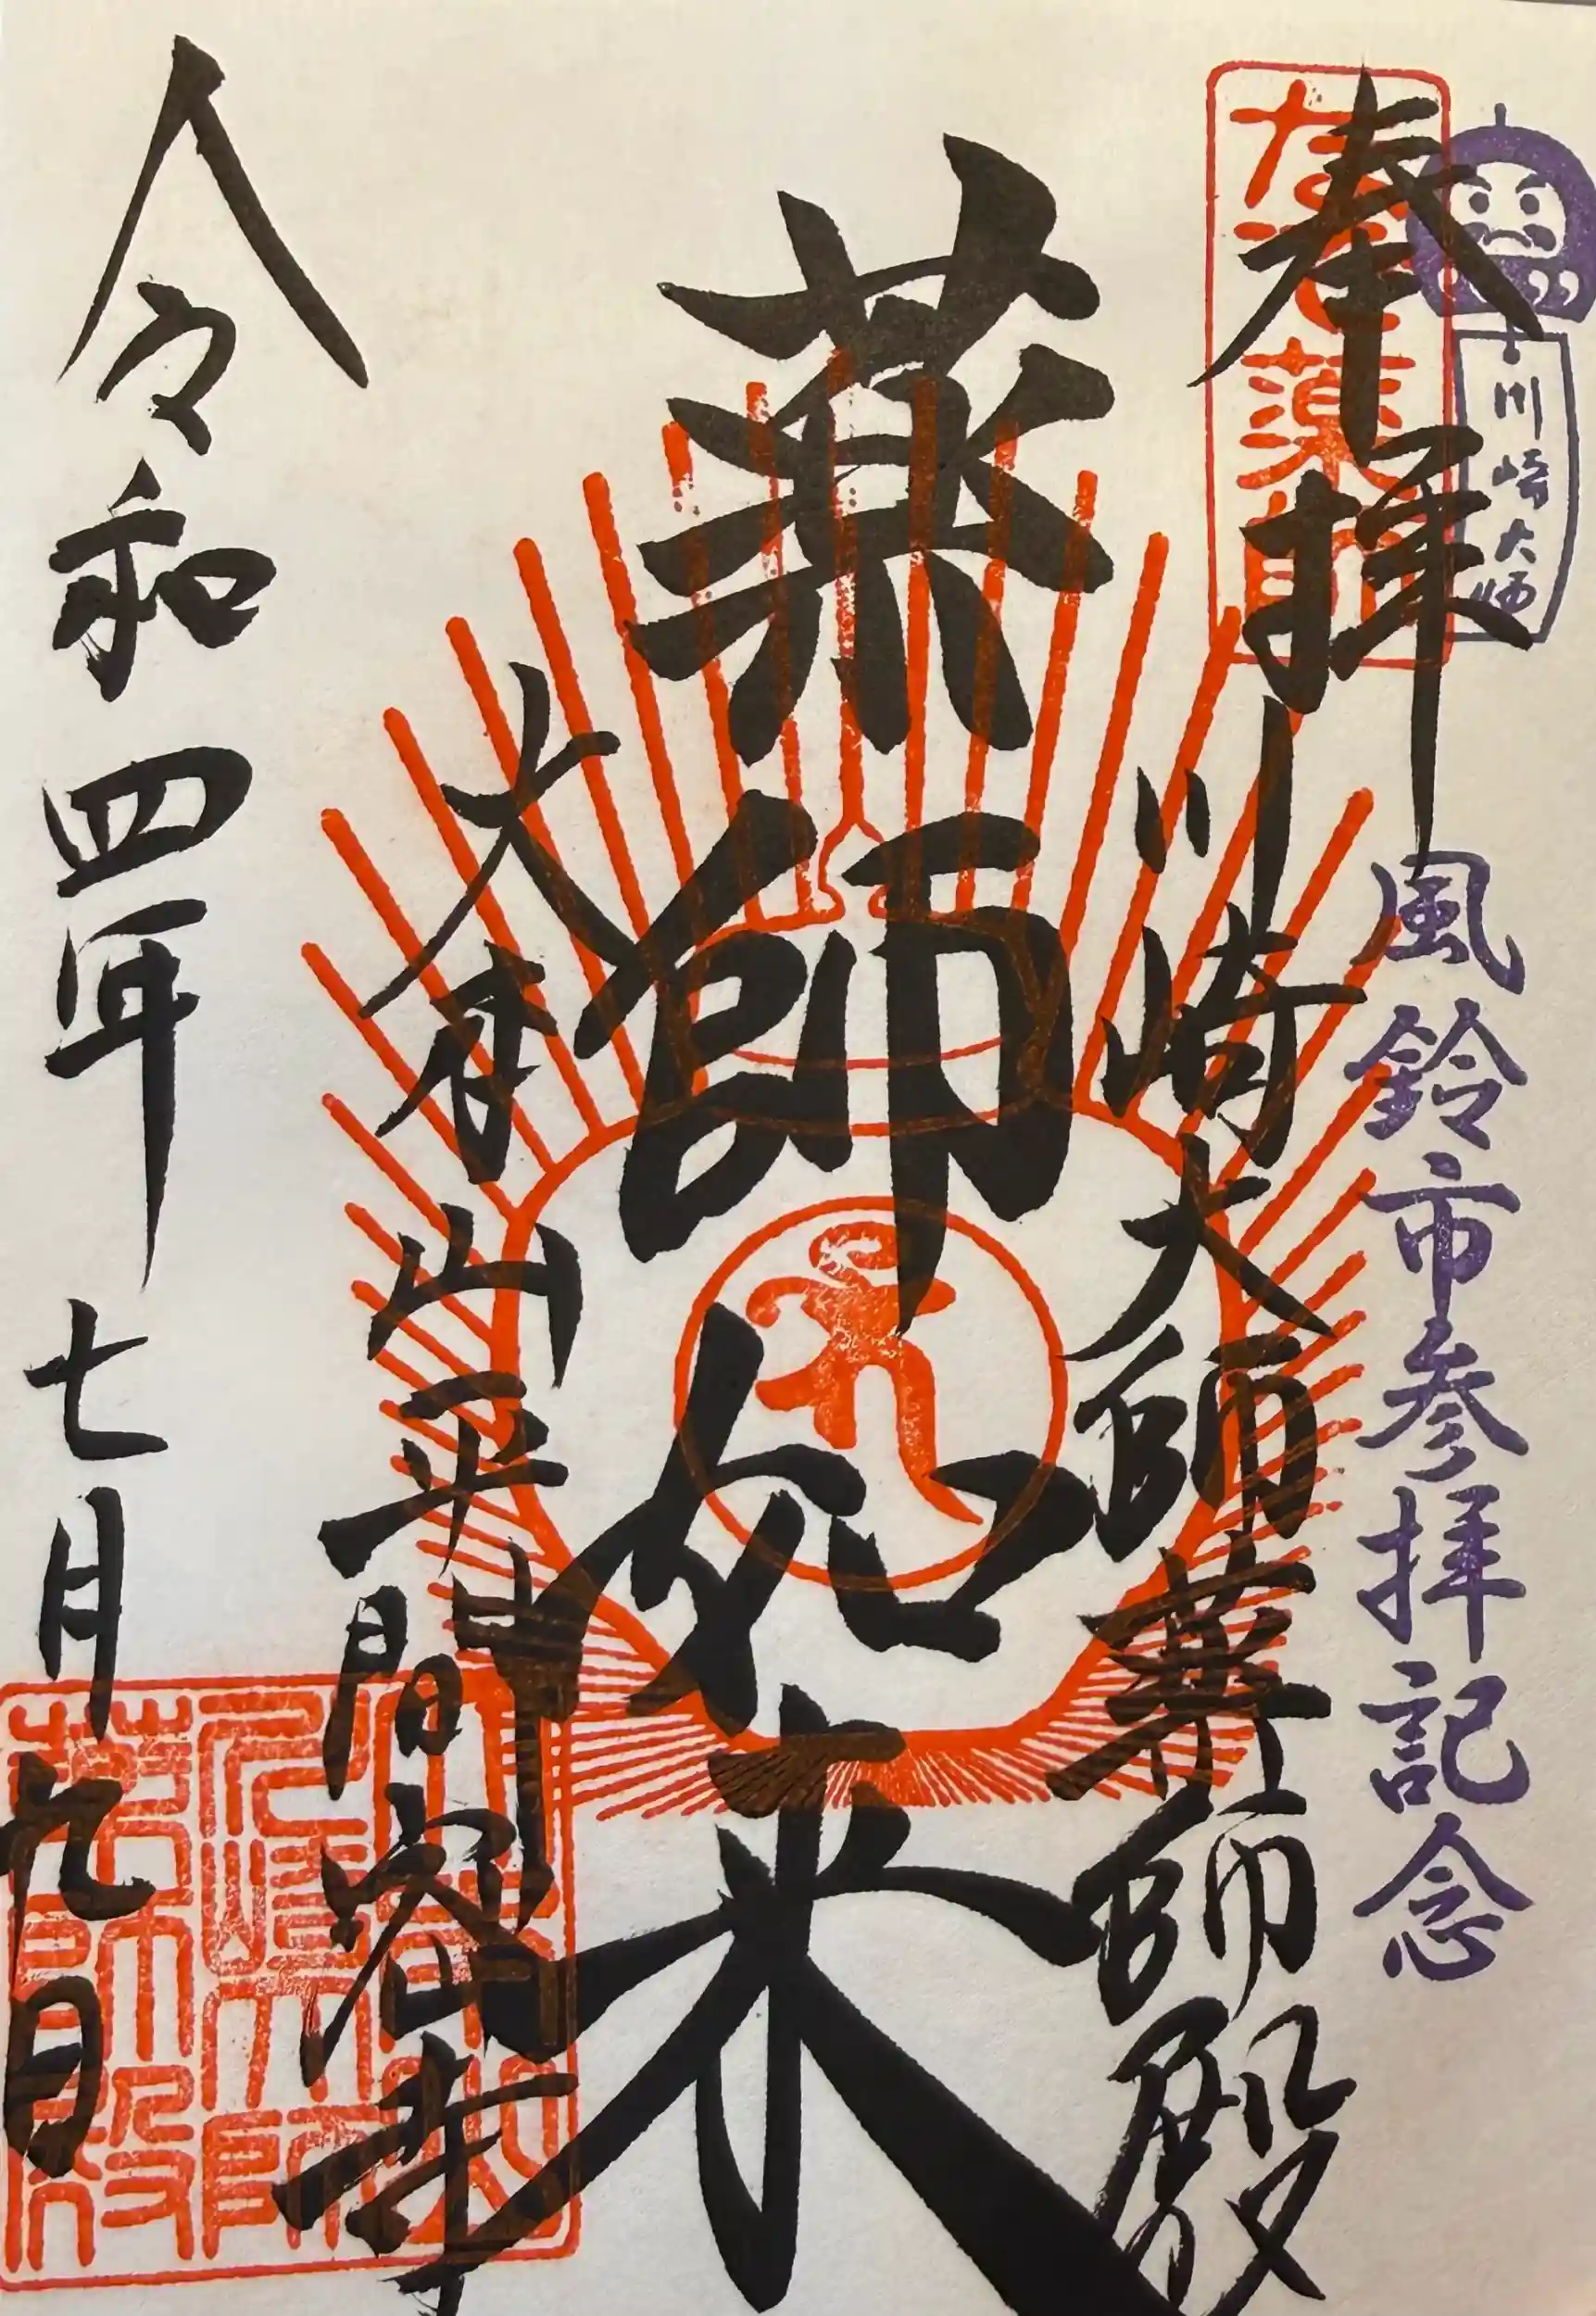 川崎大師
風鈴市参拝記念
なで薬師
奉拝
川崎大師薬師殿
薬師如来
大本山平間寺
令和四年七月九日